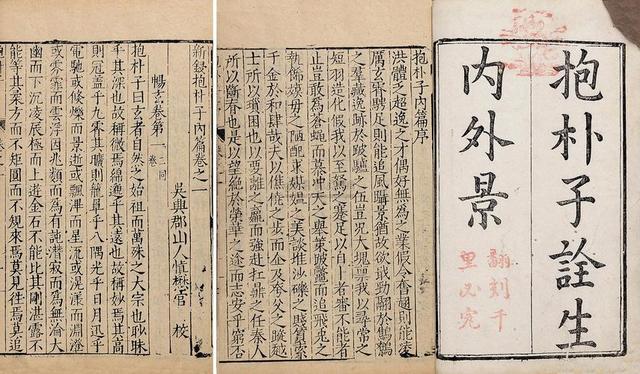 抱朴子詮生
內外景
翻刻千
里必究
抱朴子內篇序
洪體乏超逸之才偶好無為之業假令奮翅則能凌
厲玄霄騁足則能追風躡景猶故欲戢勁翮於鷦鷯
之羣藏逸跡於跛驢之伍豈況大塊稟我以尋常之
短羽造化假我以至駑之蹇足以自卜者審不能者
止豈敢為蒼蠅而慕冲天之舉策跛鼈而追飛兎之
軌飾嫫母之陋醜求媒媼之美談堆沙礫之賤質索
千金於和肆哉夫以僬僥之步而企及夸父之蹤越
士所以躓困也以要離之羸而強赴扛鼎之任秦人
所以斷筋也是以望絕於榮華之途而志安乎窮否
新鋟抱朴子內篇卷之一
吳興郡山人慎懋官 校
暢玄卷第一 二同卷
抱朴子曰玄者自然之始祖而萬殊之大宗也眇昧
乎其深也故稱微焉綿邈乎其遠也故稱妙焉其高
則冠蓋乎九霄其曠則籠罩乎八隅光乎日月迅乎
電馳或倏爍而景逝或飄滭而星流或滉漾而淵澄
或雰霏而雲浮因兆類而為有託潛寂而為無淪大
幽而下沉凌辰極而上遊金石不能比其剛湛露不
能等其柔方而不矩圓而不規來焉莫見往焉莫追